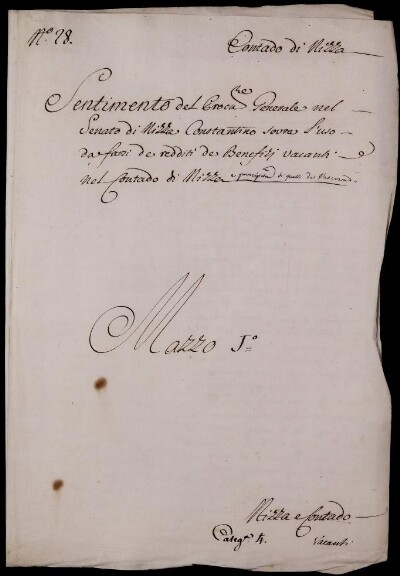 N.º 28.
Contado di Nizza
Sentimento del Proc.re Generale nel
Senato di Nizza Constantino sovra l'uso
da farsi de redditi de Benefizj vacanti
nel Contado di Nizza e principalm.te di quelli de
Mazzo I.º
Nizza e Contado
Categ.a 4. Vacanti